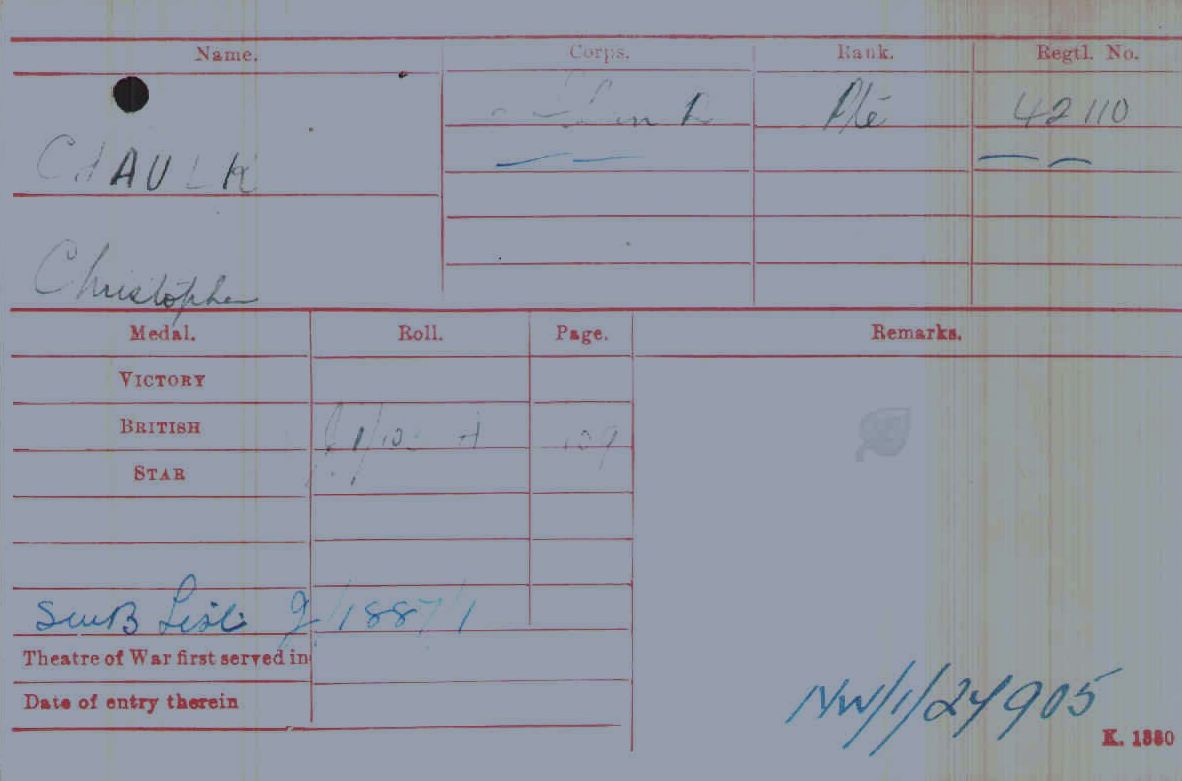 Name. Corps. Rank. Regtl. No.
R Pte 42110
CHAULK
Christopher
Medal. Roll. Page. Remarks.
VICTORY
BRITISH 109
STAR
SWB List J/1887/1
Theatre of War first served in
Date of entry therein
NW/1/24905
K. 1380